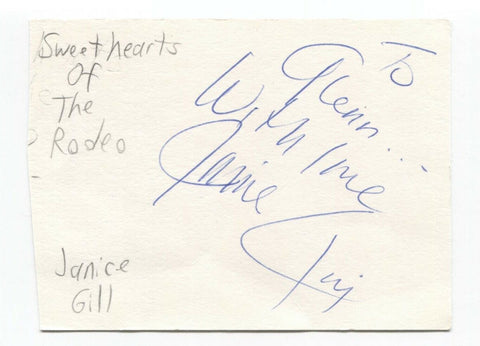 Sweethearts
Of
The
Rodeo
Janice
Gill
To
Glenn...
With love
Janice